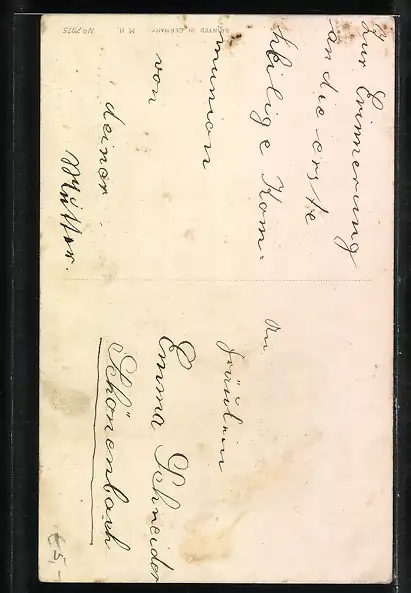 Zur Erinnerung
an die erste
heilige Kom-
munion
von
deiner
Mutter.
An
Fräulein
Emma Schneider
Schönenbach
No 7075 M. H. PRINTED IN GERMANY
€5,-